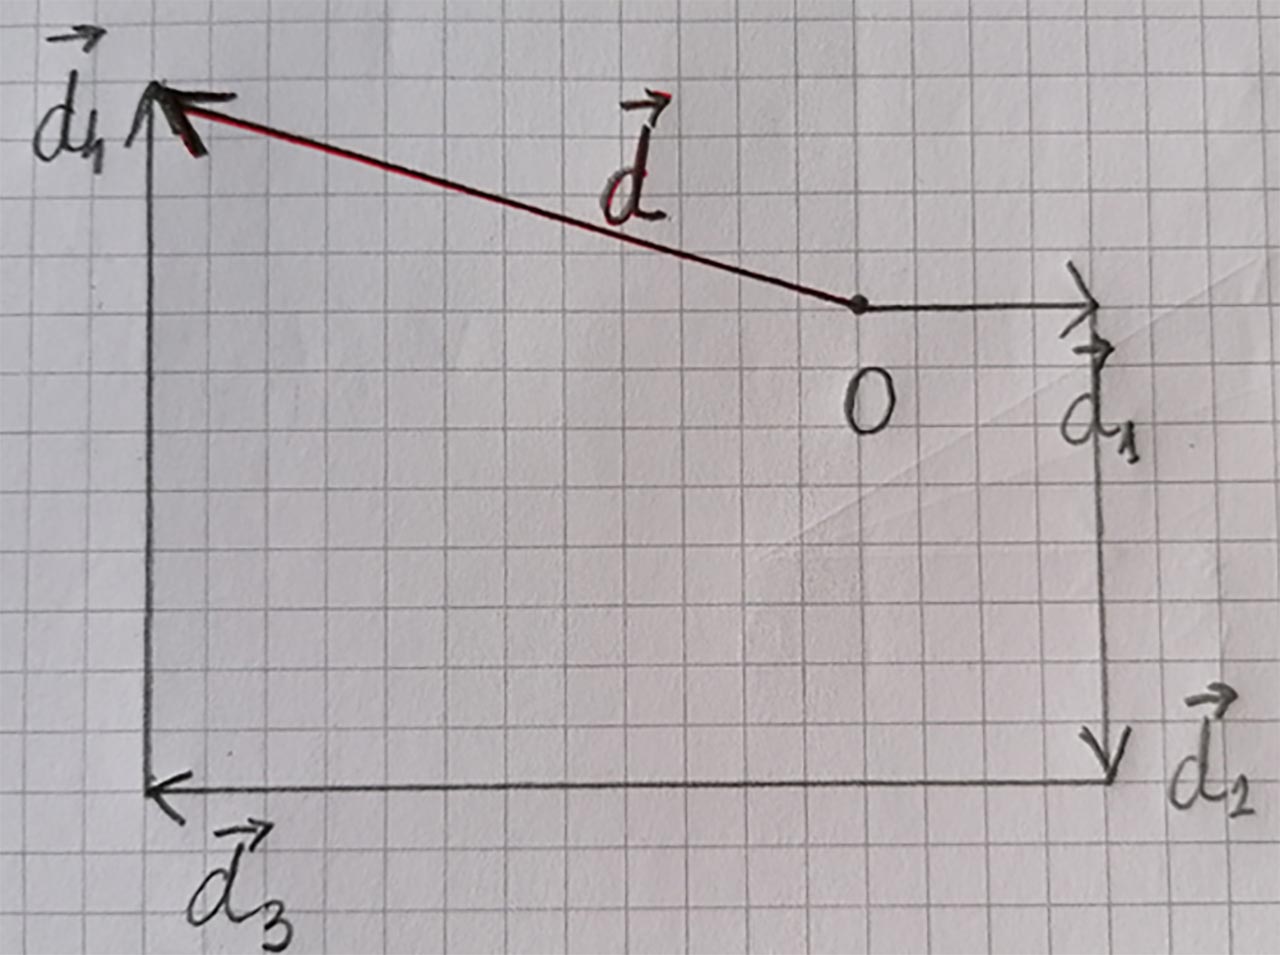 d⃗4
d⃗
O
d⃗1
d⃗2
d⃗3